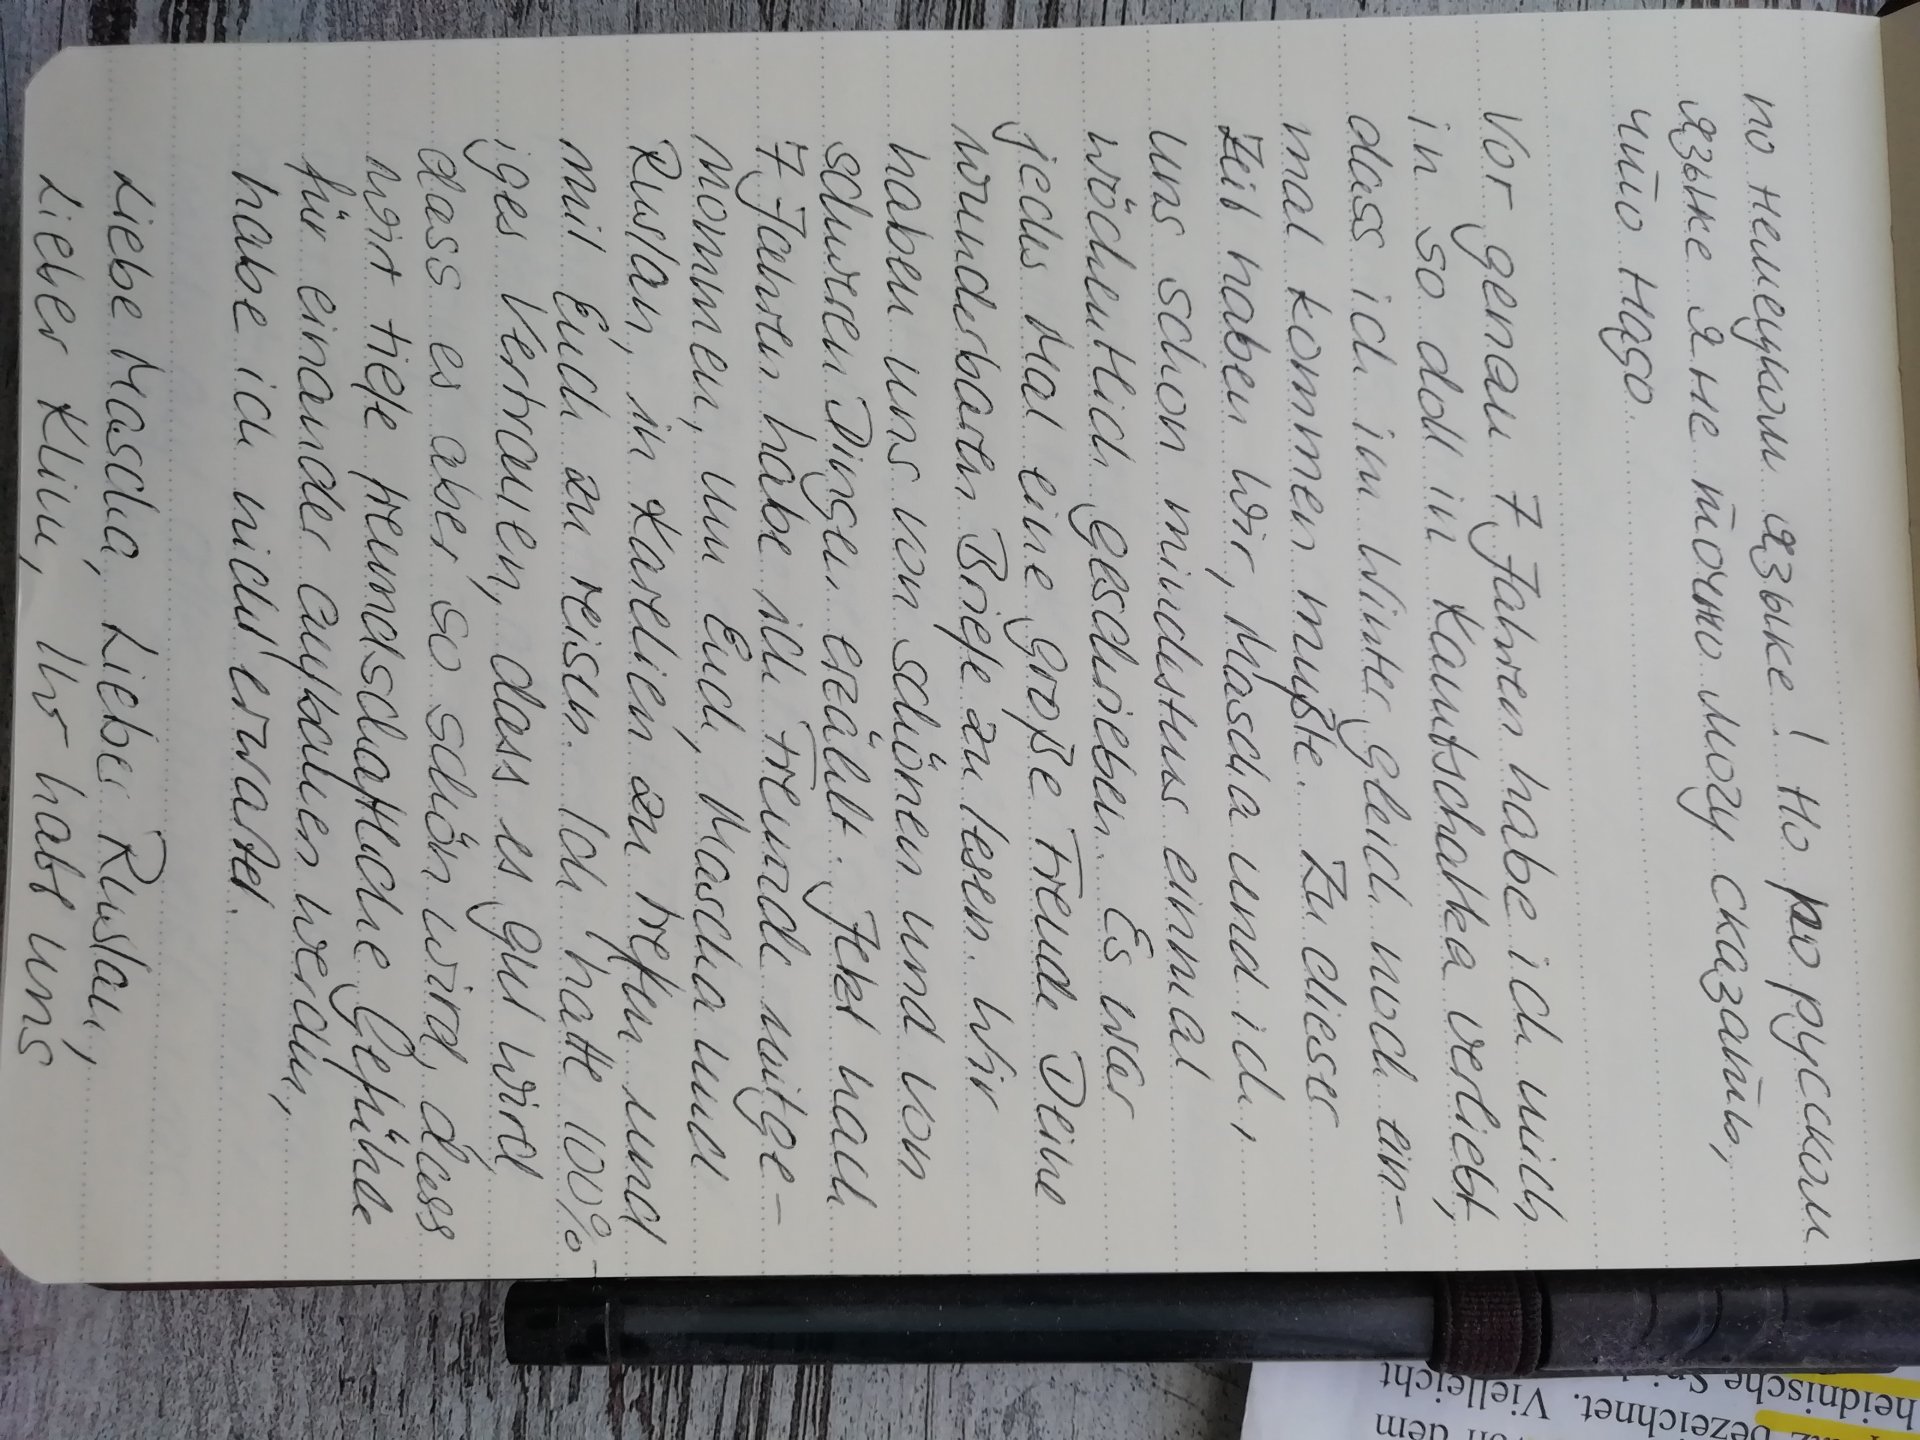 по немецком языке! Но по русском
языке я не точно могу сказать,
что надо.
Vor genau 7 Jahren habe ich mich
in so doll in Kamtschatka verliebt,
dass ich im Winter gleich noch ein-
mal kommen mußte. Zu dieser
Zeit haben wir, Mascha und ich,
uns schon mindestens einmal
wöchentlich geschrieben. Es war
jedes Mal eine große Freude Deine
wunderbaren Briefe zu lesen. Wir
haben uns von schönen und von
schweren Dingen erzählt. Jetzt nach
7 Jahren habe ich Freunde mitge-
nommen, um Euch, Mascha und
Ruslan, in Karelien zu treffen und
mit Euch zu reisen. Ich hatte 100%
iges Vertrauen, dass es gut wird
dass es aber so schön wird, dass
wir tiefe freundschaftliche Gefühle
für einander aufbauen werden,
habe ich nicht erwartet.
Liebe Mascha, Lieber Ruslan,
Lieber Klim, Ihr habt uns
bezeichnet. Vielleicht
heidnische
dem